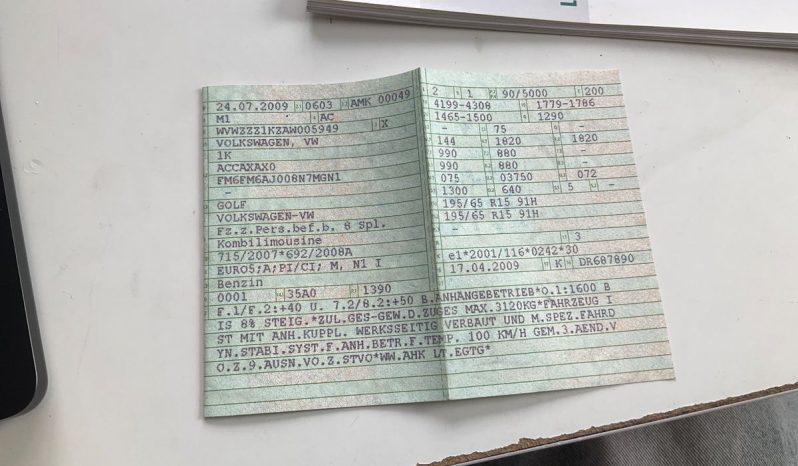 24.07.2009 0603 AMK 00049
M1 AC
WVWZZZ1KZAW005949 X
VOLKSWAGEN, VW
1K
ACCAXAX0
FM6FM6AJ008N7MGN1
-
GOLF
VOLKSWAGEN-VW
Fz.z.Pers.bef.b. 8 Spl.
Kombilimousine
715/2007*692/2008A
EURO5;A;PI/CI; M, N1 I
Benzin
0001 35A0 1390
2 1 90/5000 200
4199-4308 1779-1786
1465-1500 1290
- 75 -
144 1820 1820
990 880 -
990 880 -
075 03750 072
1300 640 5 -
195/65 R15 91H
195/65 R15 91H
-
3
e1*2001/116*0242*30
17.04.2009 K DR687890
F.1/F.2:+40 U. 7.2/8.2:+50 B.ANHANGEBETRIEB*O.1:1600 B
IS 8% STEIG.*ZUL.GES-GEW.D.ZUGES MAX.3120KG*FAHRZEUG I
ST MIT ANH.KUPPL. WERKSSEITIG VERBAUT UND M.SPEZ.FAHRD
YN.STABI.SYST.F.ANH.BETR.F.TEMP. 100 KM/H GEM.3.AEND.V
O.Z.9.AUSN.VO.Z.STVO*WW.AHK LT.EGTG*